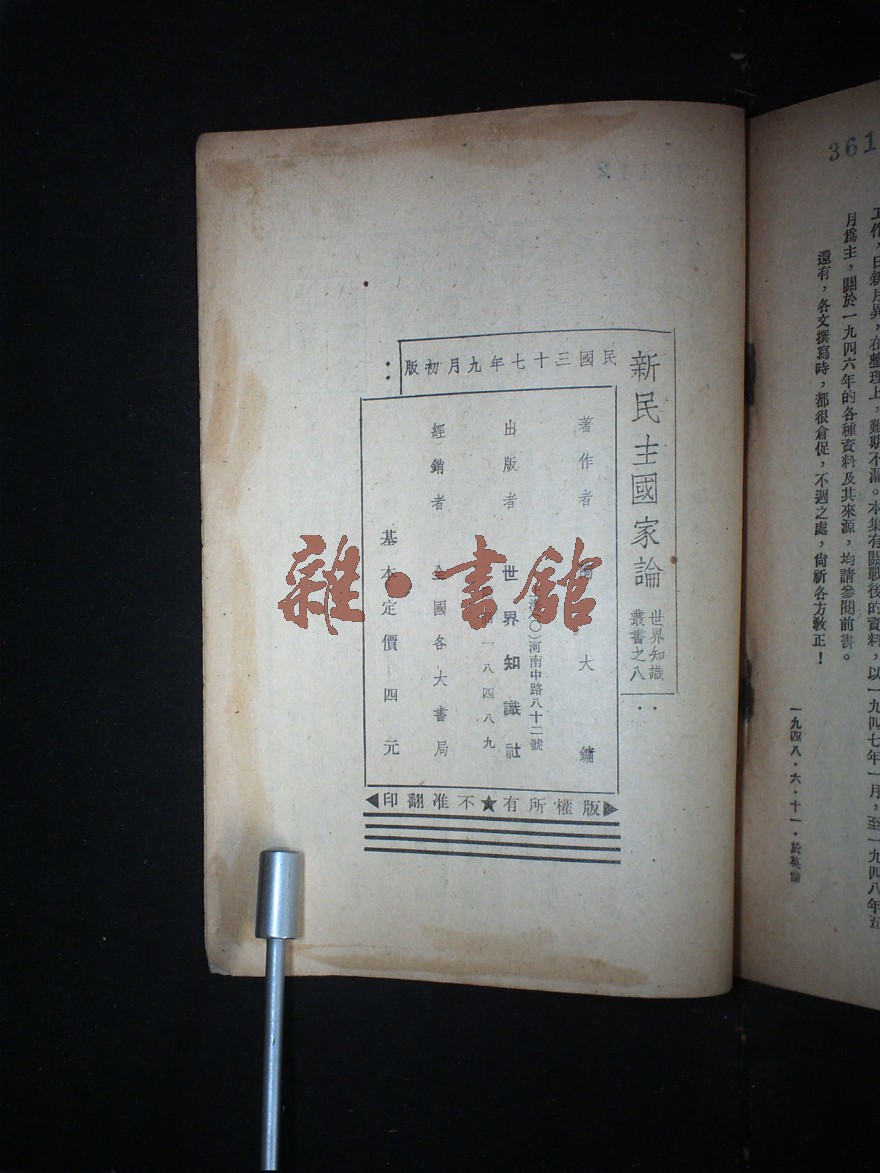 361
工作，日新月異，在整理上，難期不漏。本集有關戰後的資料，以一九四七年一月，至一九四八年五
月爲主，關於一九四六年的各種資料及其來源，均請參閱前書。
還有，各文撰寫時，都很倉促，不週之處，尙祈各方教正！
一九四八・六・十一・於英倫
新民主國家論
世界知識
叢書之八
民國三十七年九月初版
著作者 大鏞
出版者 世界知識社
〇）河南中路八十二號
一八四八九
經銷者 全國各大書局
基本定價四元
版權所有★不准翻印
雜・書館